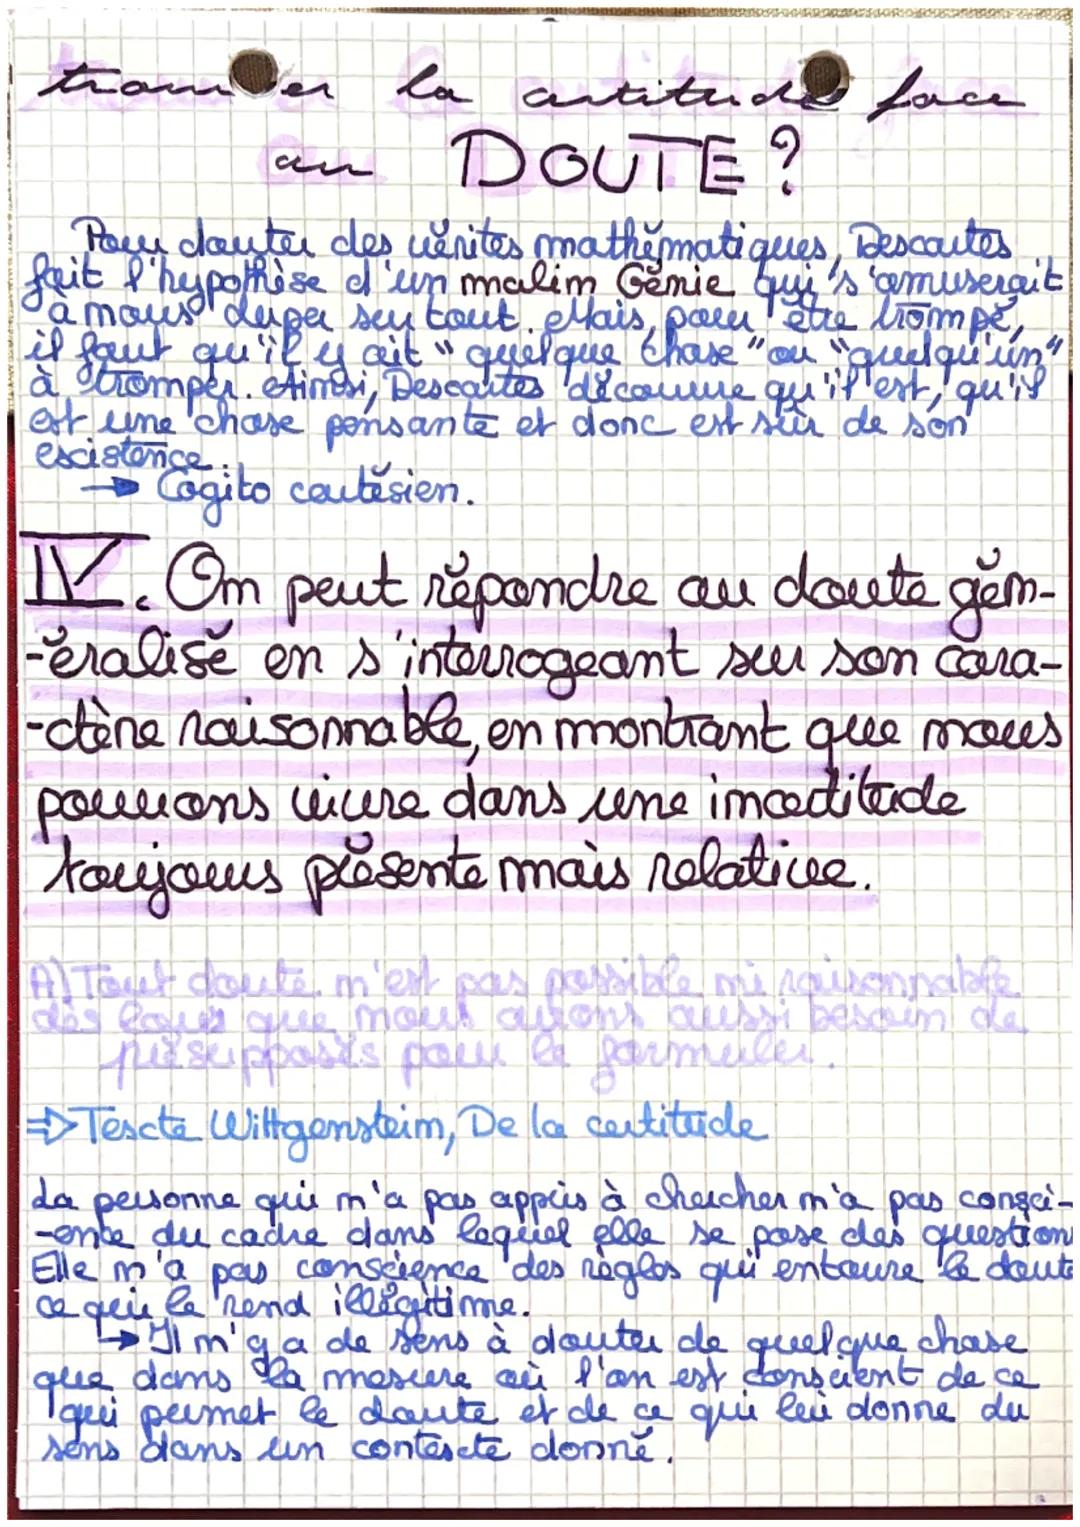 trouver la certitude face
au DOUTE ?
Pour douter des vérites mathématiques, Descartes
fait l'hypothèse d'un malin Génie qui s'amuserait
à nous duper sur tout. Mais, pour être trompé,
il faut qu'il y ait "quelque chose" ou "quelqu'un"
à tromper. Ainsi, Descartes découvre qu'il est, qu'il
est une chose pensante et donc est sûr de son
existence.
→ Cogito cartésien.
IV. On peut répondre au doute gén-
-éralisé en s'interrogeant sur son cara-
-ctère raisonnable, en montrant que nous
pouvons vivre dans une incertitude
toujours présente mais relative.
A) Tout doute n'est pas possible ni raisonnable
dès lors que nous avons aussi besoin de
présupposés pour le formuler.
⇒ Texte Wittgenstein, De la certitude
La personne qui n'a pas appris à chercher n'a pas consci-
-ence du cadre dans lequel elle se pose des questions
Elle n'a pas conscience des règles qui entoure le doute
ce qui le rend illégitime.
↳ Il n'y a de sens à douter de quelque chose
que dans la mesure où l'on est conscient de ce
qui permet le doute et de ce qui lui donne du
sens dans un contexte donné.